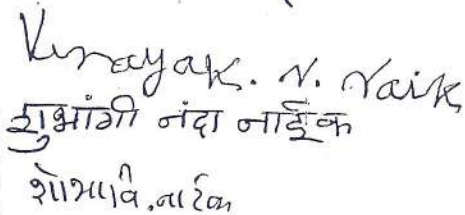 Vinayak. N. Naik
शुभांगी नंदा नाईक
शोभा वि. नाईक